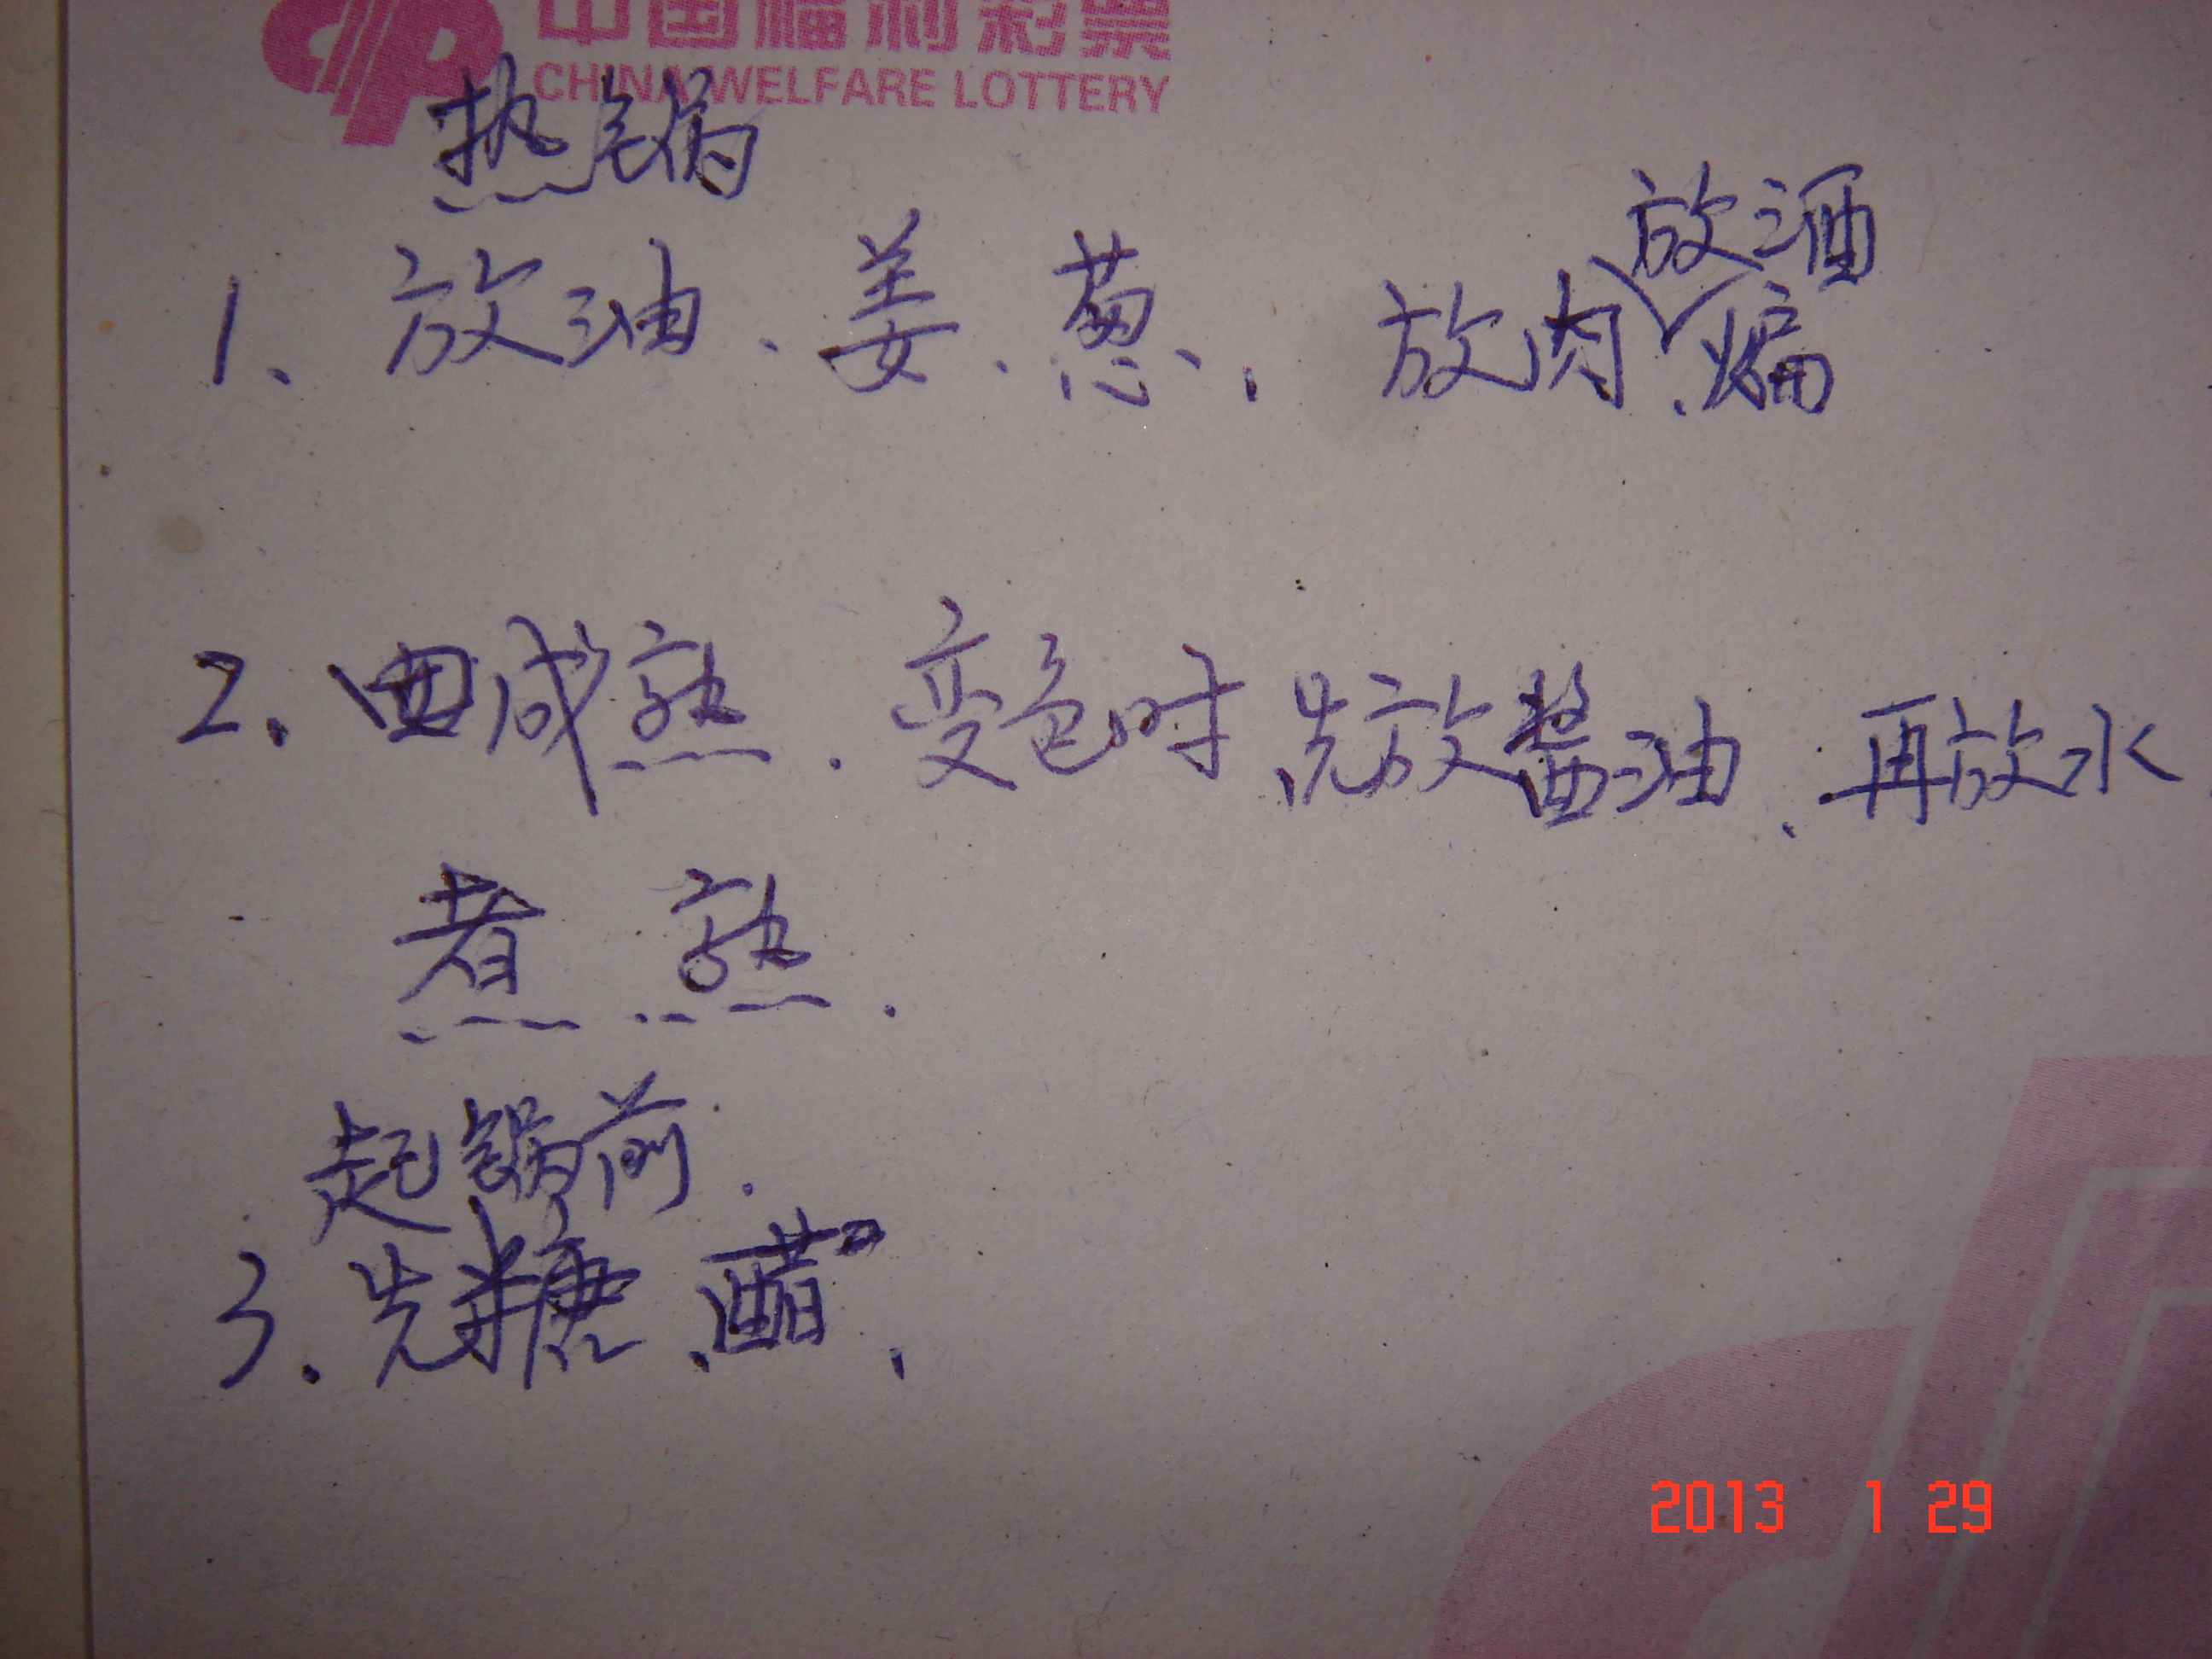 中国福利彩票
CHINA WELFARE LOTTERY
热锅
放酒
1、放油、姜、葱、放肉、煸
2、四成熟、变色时、先放酱油、再放水
煮熟.
起锅前.
3、先糖、醋、
2013 1 29